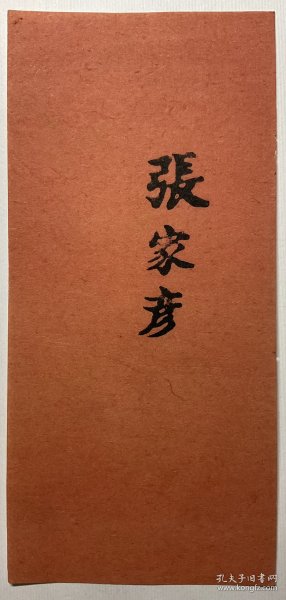 張家彦
孔夫子旧书网
www.kongfz.com